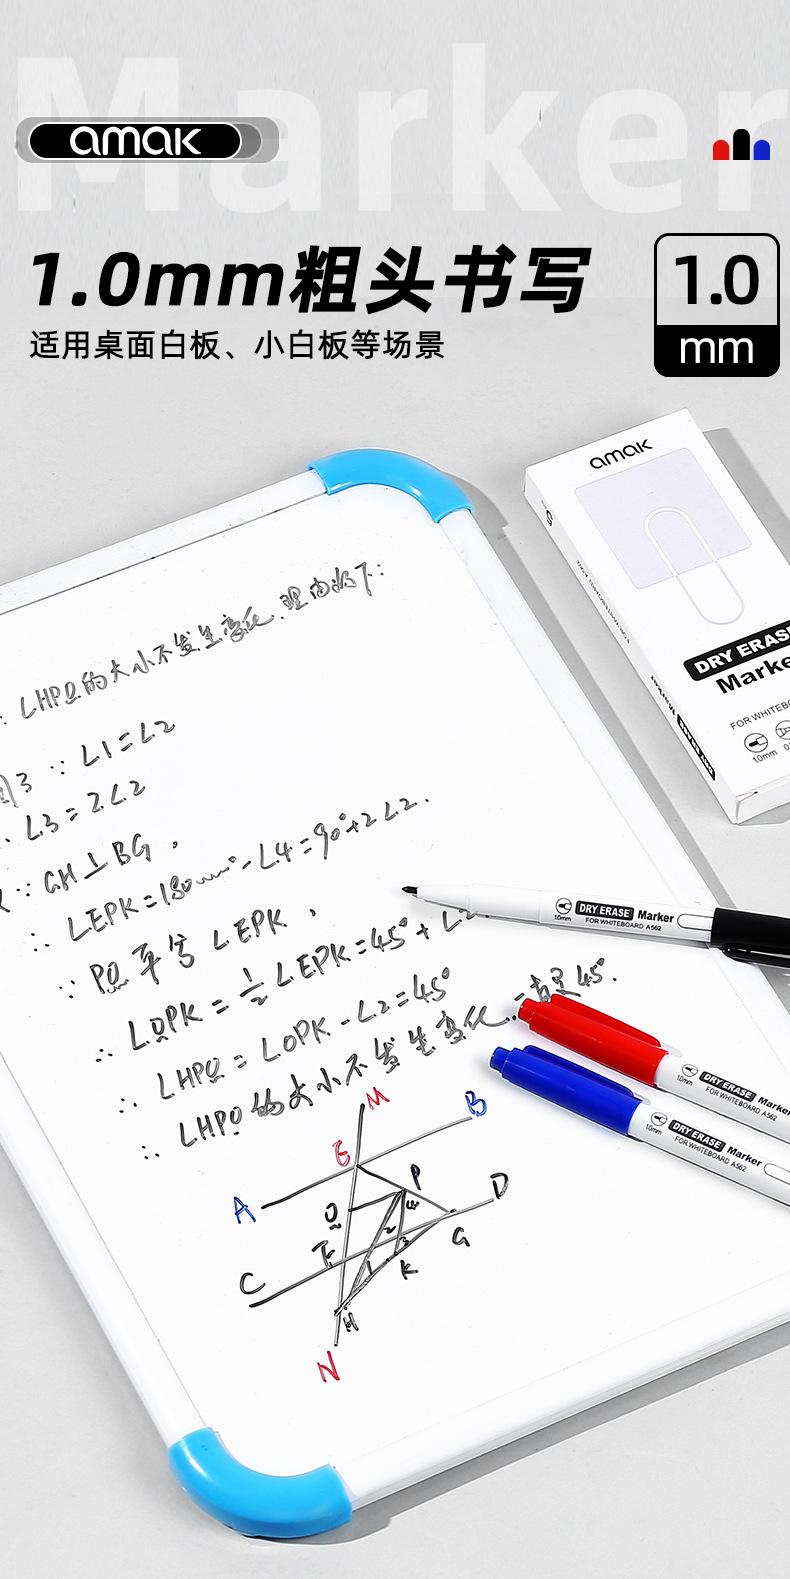 Marker
amak
1.0mm粗头书写
适用桌面白板、小白板等场景
1.0
mm
amak
5
DRY ERAS
Marke
FOR WHITEBO
1.0mm
DRY ERASE Marker
: ∠HPQ的大小不发生变化.理由如下:
3 ∵ ∠1=∠2
∠3=2∠2
∵ GH⊥BG,
∴ ∠EPK=180°-∠4=90°+2∠2.
∵ PQ平分∠EPK,
∴ ∠QPK=½∠EPK=45°+∠2.
∴ ∠HPQ=∠QPK-∠2=45°
∴ ∠HPQ的大小不发生变化,一直是45°.
1.0mm DRY ERASE Marker
FOR WHITEBOARD A562
1.0mm DRY ERASE Marker
FOR WHITEBOARD A562
1.0mm DRY ERASE Marker
FOR WHITEBOARD A562
M
B
E
A
P
D
Q
4
2
G
F
3
K
C
1
H
N